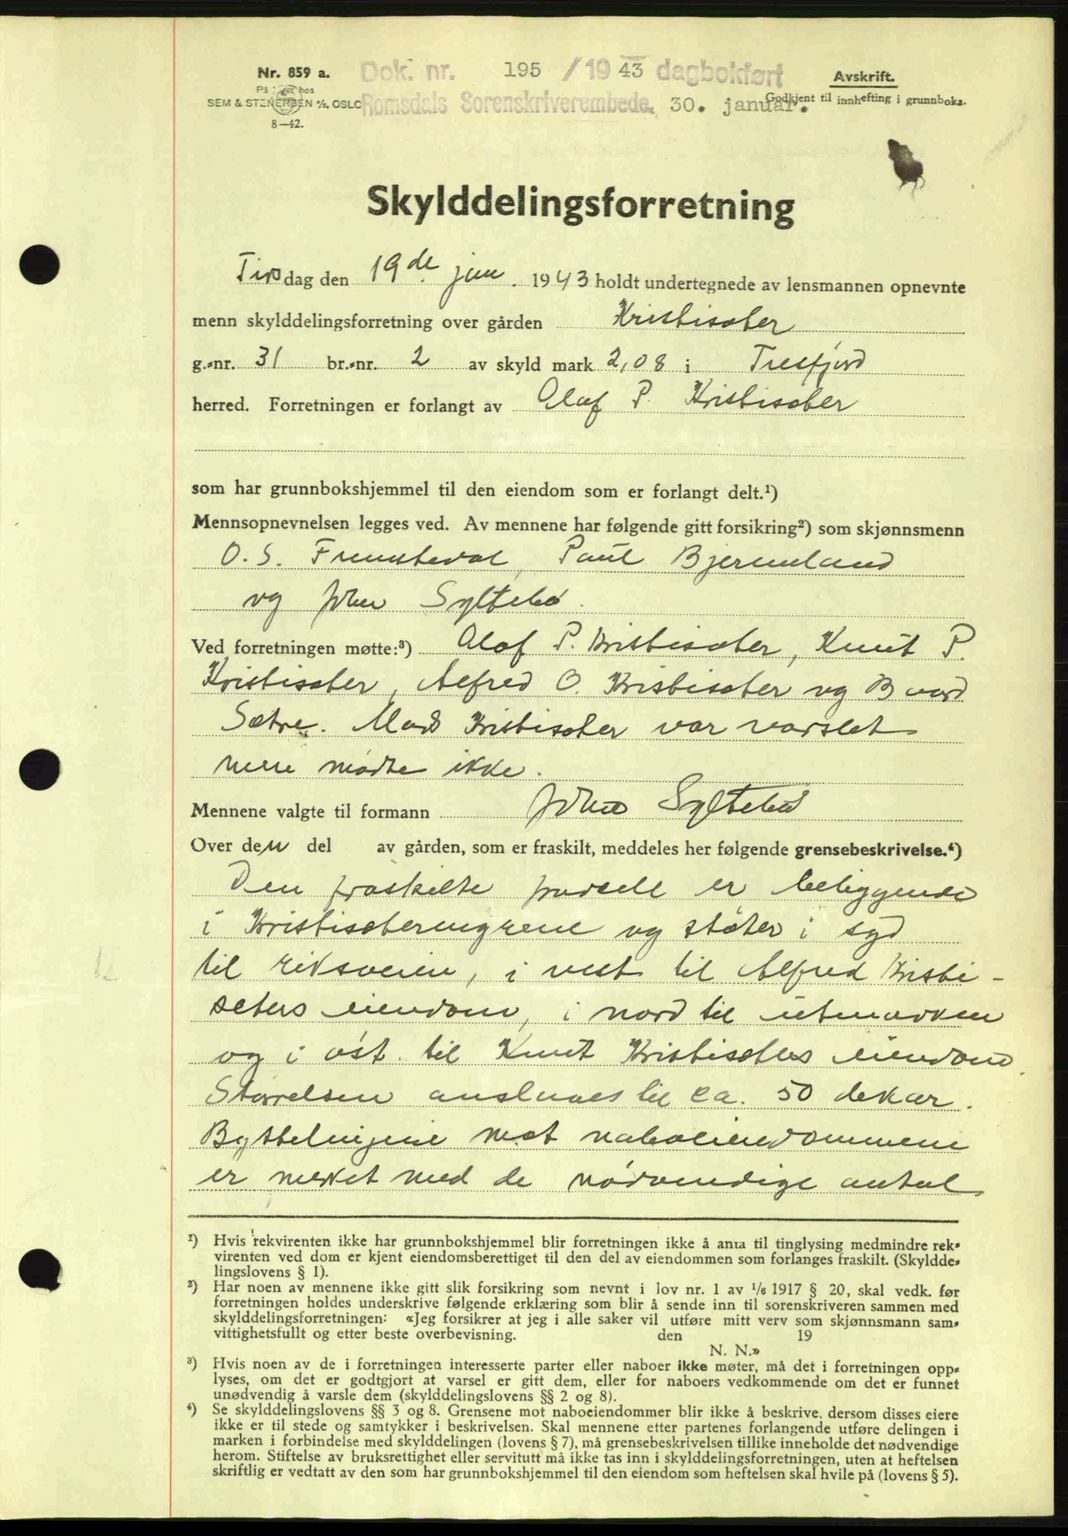 Nr. 859 a.
SEM & STENERSEN A/S, OSLO
8—42.
Dok. nr. 195 / 1943 dagbokført
Romsdals Sorenskriverembede. 30. januar.
Avskrift.
Godkjent til innhefting i grunnboka.
Skylddelingsforretning
Tirsdag den 19de jan. 1943 holdt undertegnede av lensmannen opnevnte
menn skylddelingsforretning over gården Kristisæter
g.-nr. 31 br.-nr. 2 av skyld mark 2,08 i Tresfjord
herred. Forretningen er forlangt av Olaf P. Kristisæter
som har grunnbokshjemmel til den eiendom som er forlangt delt.¹)
Mennsopnevnelsen legges ved. Av mennene har følgende gitt forsikring²) som skjønnsmenn
O. S. Paul Bjermeland
og John Syltebø.
Ved forretningen møtte:³) Olaf P. Kristisæter, Knut P.
Kristisæter, Alfred O. Kristisæter og Baard
Sætre. Mads Kristisæter var varslet
men mødte ikke.
Mennene valgte til formann John Syltebø
Over den del av gården, som er fraskilt, meddeles her følgende grensebeskrivelse.⁴)
Den fraskilte parsell er beliggende
i Kristisæterengene og støter i syd
til riksveien, i vest til Alfred Kristi-
seters eiendom, i nord til utmarken
og i øst til Knut Kristisæters eiendom.
Størrelsen anslaaes til ca. 50 dekar.
Byttelinjene mot naboeiendommene
er merket med de nødvendige antal
¹) Hvis rekvirenten ikke har grunnbokshjemmel blir forretningen ikke å anta til tinglysing medmindre rek-
virenten ved dom er kjent eiendomsberettiget til den del av eiendommen som forlanges fraskilt. (Skyldde-
lingslovens § 1).
²) Har noen av mennene ikke gitt slik forsikring som nevnt i lov nr. 1 av 1/6 1917 § 20, skal vedk. før
forretningen holdes underskrive følgende erklæring som blir å sende inn til sorenskriveren sammen med
skylddelingsforretningen: «Jeg forsikrer at jeg i alle saker vil utføre mitt verv som skjønnsmann sam-
vittighetsfullt og etter beste overbevisning. den 19
N. N.»
³) Hvis noen av de i forretningen interesserte parter eller naboer ikke møter, må det i forretningen opp-
lyses, om det er godtgjort at varsel er gitt dem, eller for naboers vedkommende om det er funnet
unødvendig å varsle dem (skylddelingslovens §§ 2 og 8).
⁴) Se skylddelingslovens §§ 3 og 8. Grensene mot naboeiendommer blir ikke å beskrive, dersom disses eiere
ikke er til stede og samtykker i beskrivelsen. Skal mennene etter partenes forlangende utføre delingen i
marken i forbindelse med skylddelingen (lovens § 7), må grensebeskrivelsen tillike inneholde det nødvendige
herom. Stiftelse av bruksrettighet eller servitutt må ikke tas inn i skylddelingsforretningen, uten at heftelsen
skriftlig er vedtatt av den som har grunnbokshjemmel til den eiendom som heftelsen skal hvile på (lovens § 5).